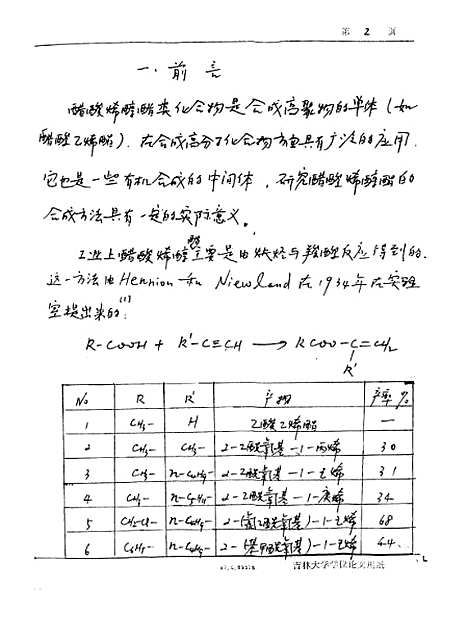 第 2 页
一. 前 言
醋酸烯醇酯类化合物是合成高聚物的单体 (如
醋酸乙烯酯). 在合成高分子化合物方面具有广泛的应用.
它也是一些有机合成的中间体, 研究醋酸烯醇酯的
合成方法具有一定的实际意义。
工业上醋酸烯醇酯主要是由炔烃与羧酸反应得到的.
这一方法由 Hennion 和 Niewland 在1934年在实验
室提出来的[1]:
R-COOH + R'-C≡CH ⟶ RCOO-C=CH2
R'
No R R' 产物 产率 %
1 CH3- H 乙酸乙烯酯 —
2 CH3- CH3- 2-乙酰氧基-1-丙烯 30
3 CH3- n-C4H9- 2-乙酰氧基-1-己烯 31
4 CH3- n-C5H11- 2-乙酰氧基-1-庚烯 34
5 CH2Cl- n-C4H9- 2-(氯乙酰氧基)-1-己烯 68
6 C6H5- n-C4H9- 2-(苯甲酰氧基)-1-己烯 44.
吉林大学学位论文用纸